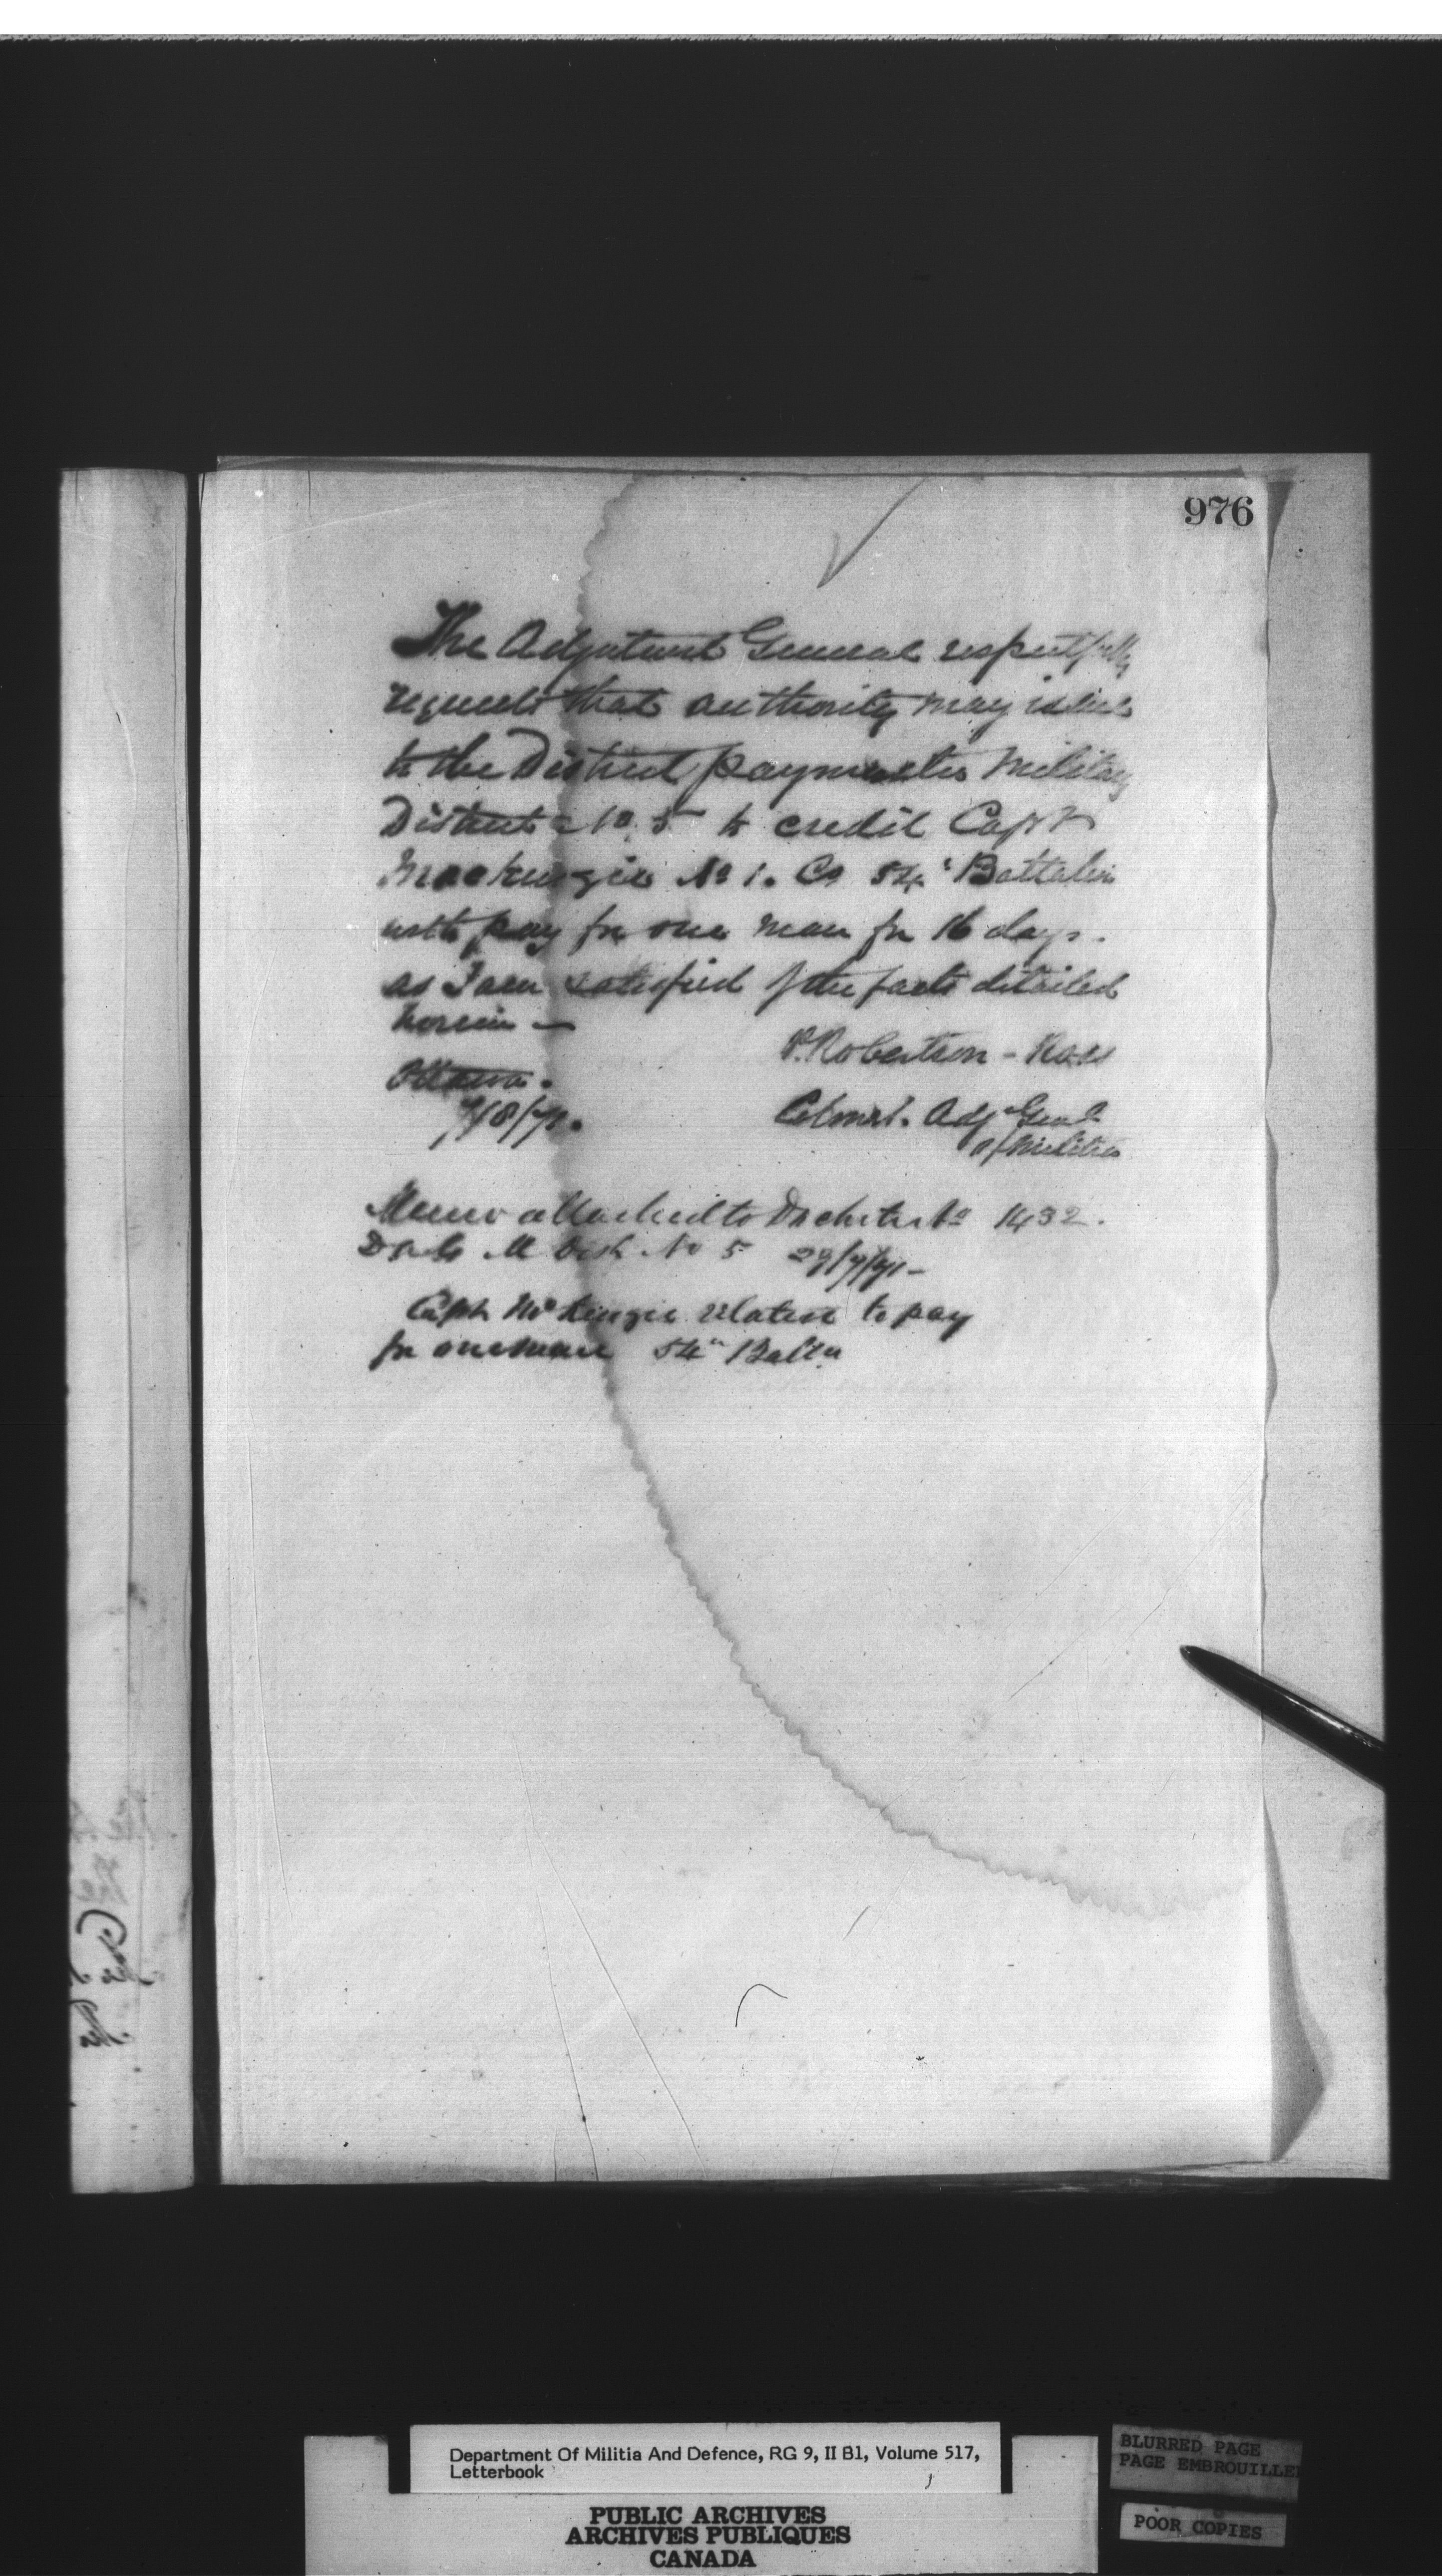 976
The Adjutant General respectfully
requests that authority may issue
to the District paymaster Military
District No. 5 to credit Capt
Mackenzie No 1. Co 54th Battalion
with pay for one man for 16 days.
as I am satisfied of the facts detailed
herein —
P. Robertson - Ross
Ottawa.
7/8/71.
Colonel. Adjt Genl
of Militia
Memo attached to Docket No 1432.
M Dist No 5 29/7/71 -
Capt McKenzie relative to pay
for one man 54th Battn
Department Of Militia And Defence, RG 9, II B1, Volume 517,
Letterbook
PUBLIC ARCHIVES
ARCHIVES PUBLIQUES
CANADA
BLURRED PAGE
PAGE EMBROUILLE
POOR COPIES